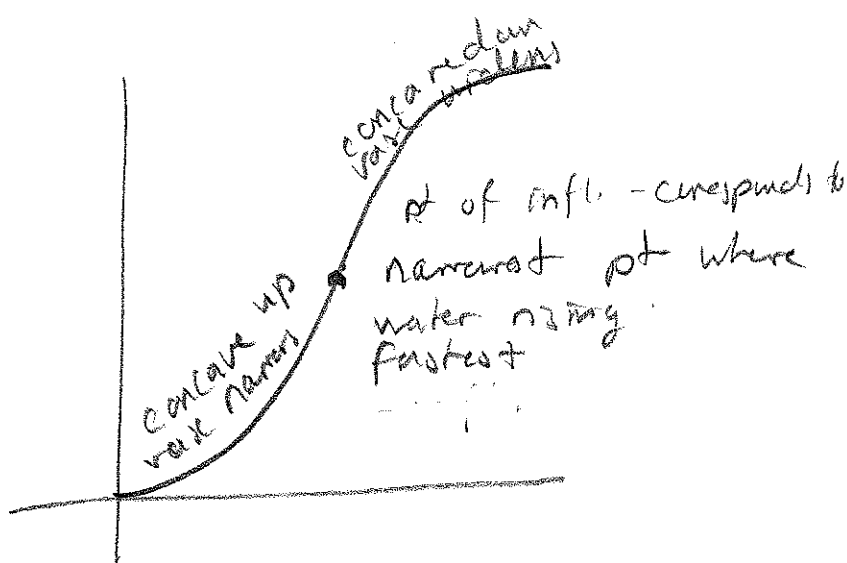 concave down
vase widens
pt of infl. - corresponds to
narrowest pt where
water rising
fastest
concave up
vase narrows